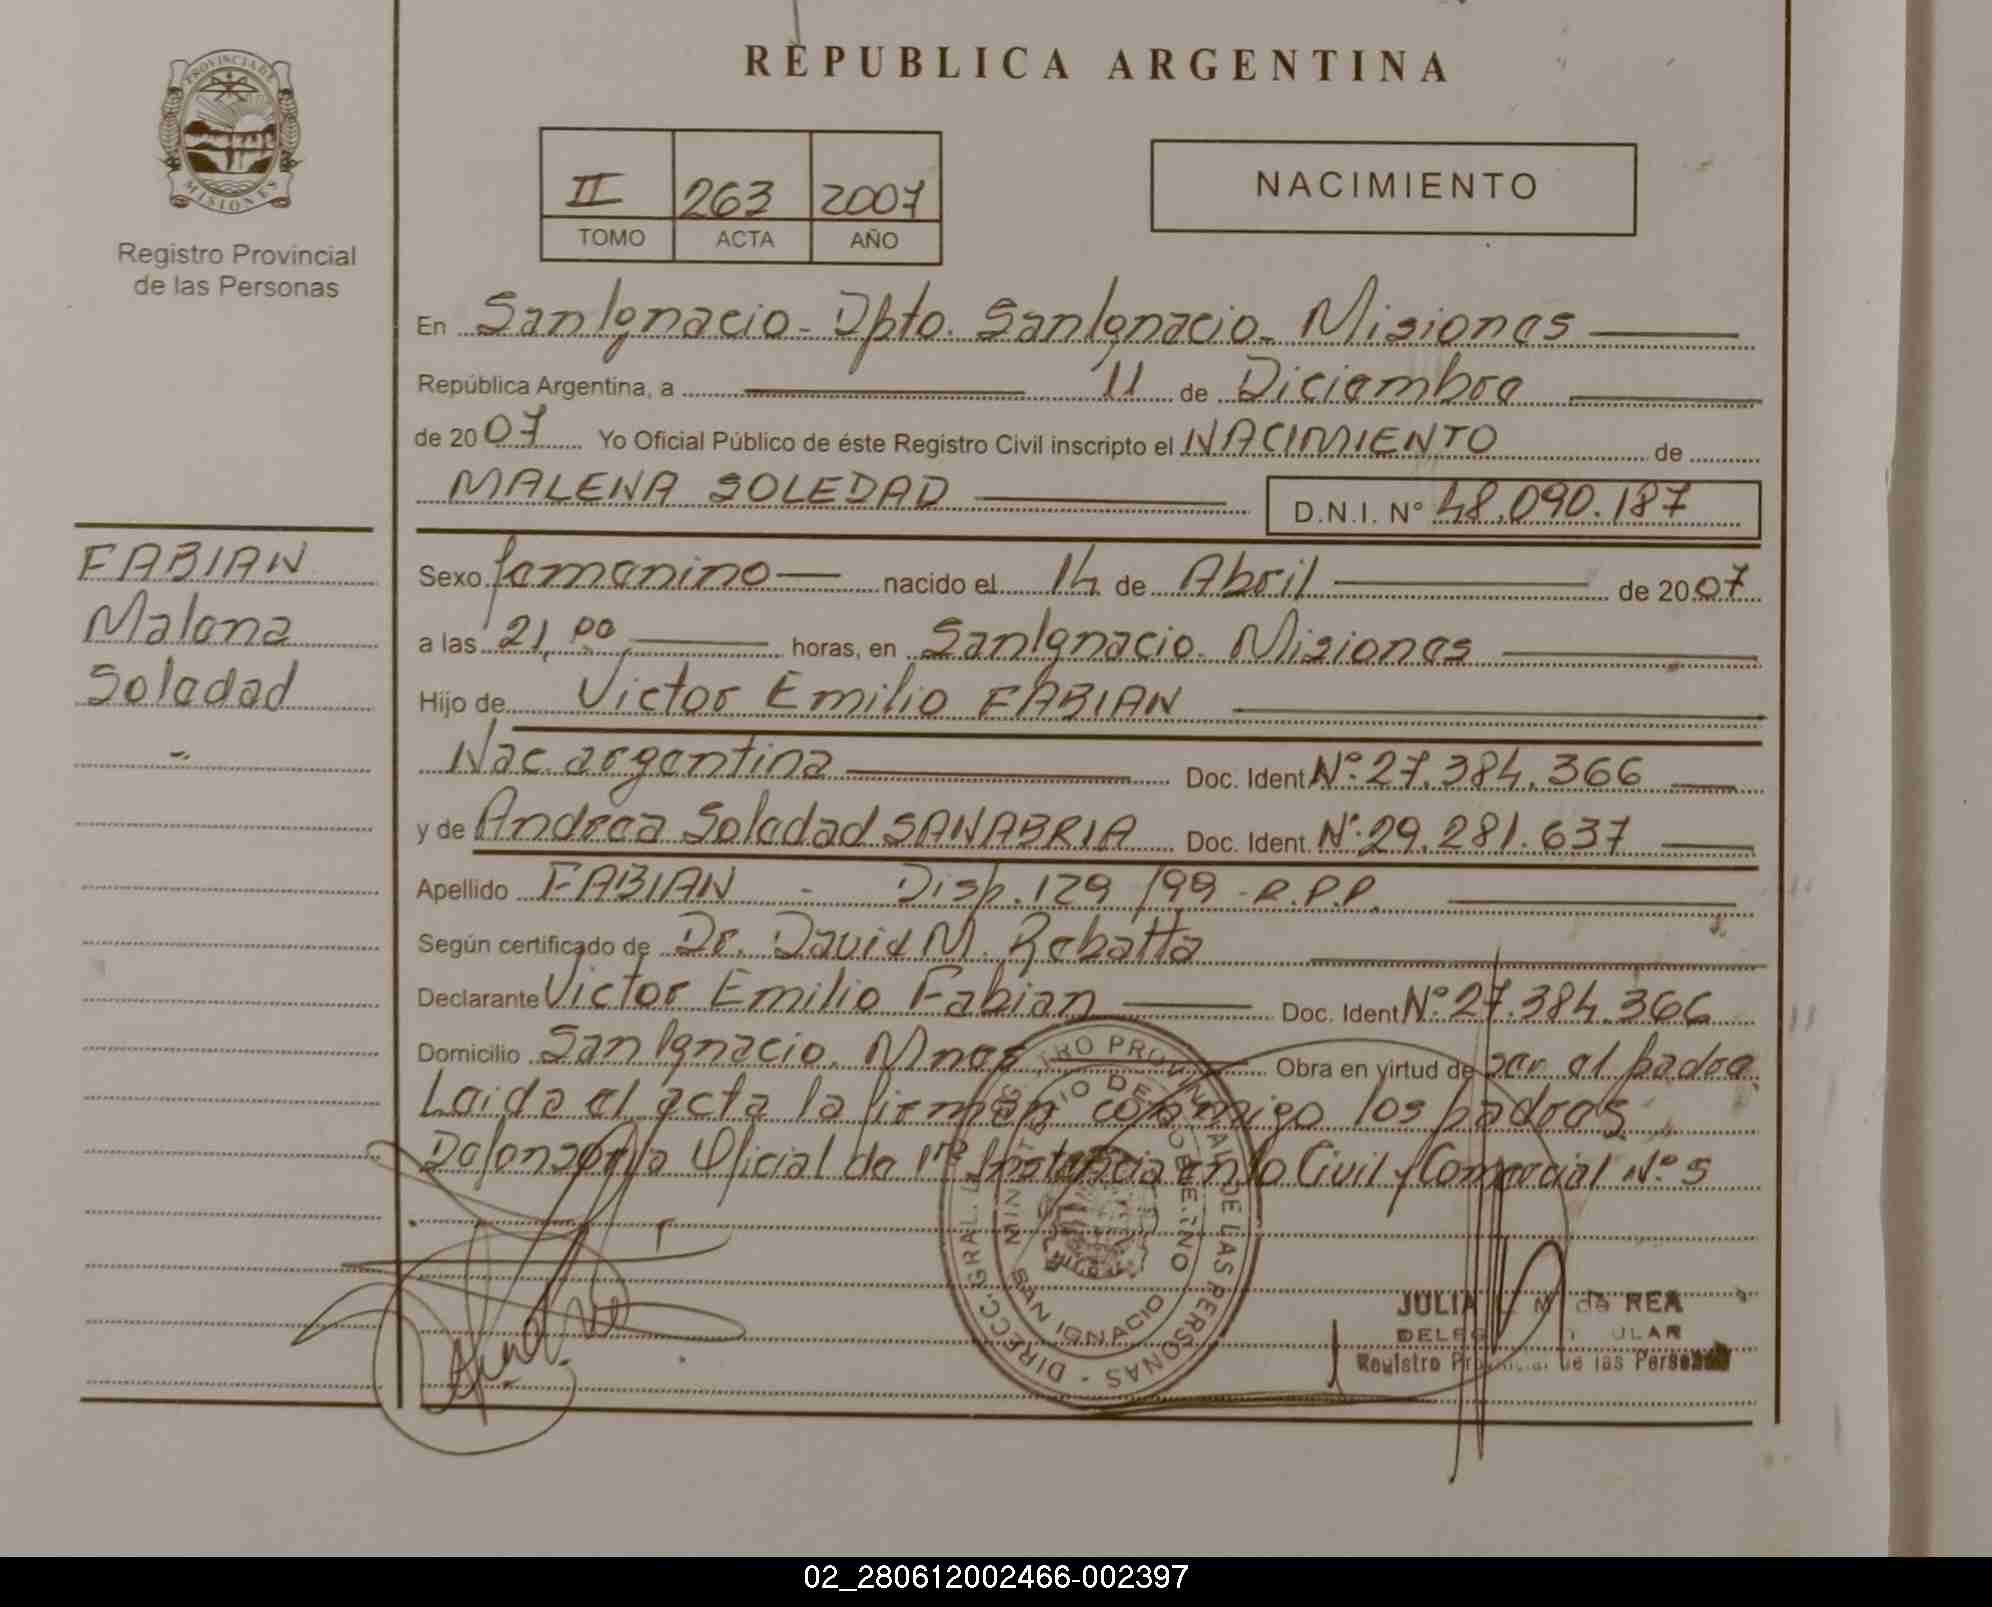 PROVINCIA DE
MISIONES
Registro Provincial
de las Personas
FABIAN
Malena
Soledad
REPUBLICA ARGENTINA
II 263 2007
TOMO ACTA AÑO
NACIMIENTO
En San Ignacio - Dpto. San Ignacio - Misiones
República Argentina, a 11 de Diciembre
de 2007 Yo Oficial Público de éste Registro Civil inscripto el NACIMIENTO de
MALENA SOLEDAD D.N.I. Nº 48.090.187
Sexo femenino nacido el 14 de Abril de 2007
a las 21,00 horas, en San Ignacio. Misiones
Hijo de Victor Emilio FABIAN
Nac. argentina Doc. Ident. Nº: 27.384.366
y de Andrea Soledad SANABRIA Doc. Ident. Nº: 29.281.637
Apellido FABIAN - Disp. 129/99 - R.P.P.
Según certificado de Dr. David M. Rebatta
Declarante Victor Emilio Fabian Doc. Ident. Nº: 27.384.366
Domicilio San Ignacio. Mnes Obra en virtud de ser el padre.
Leida el acta la firman conmigo los padres.
Defensoria Oficial de 1ra Instancia en lo Civil y Comercial Nº 5
DIRECC. GRAL. PROVINCIAL DE LAS PERSONAS
MINISTERIO DE GOBIERNO
SAN IGNACIO
JULIA M de REA
Registro Provincial de las Personas
02_280612002466-002397